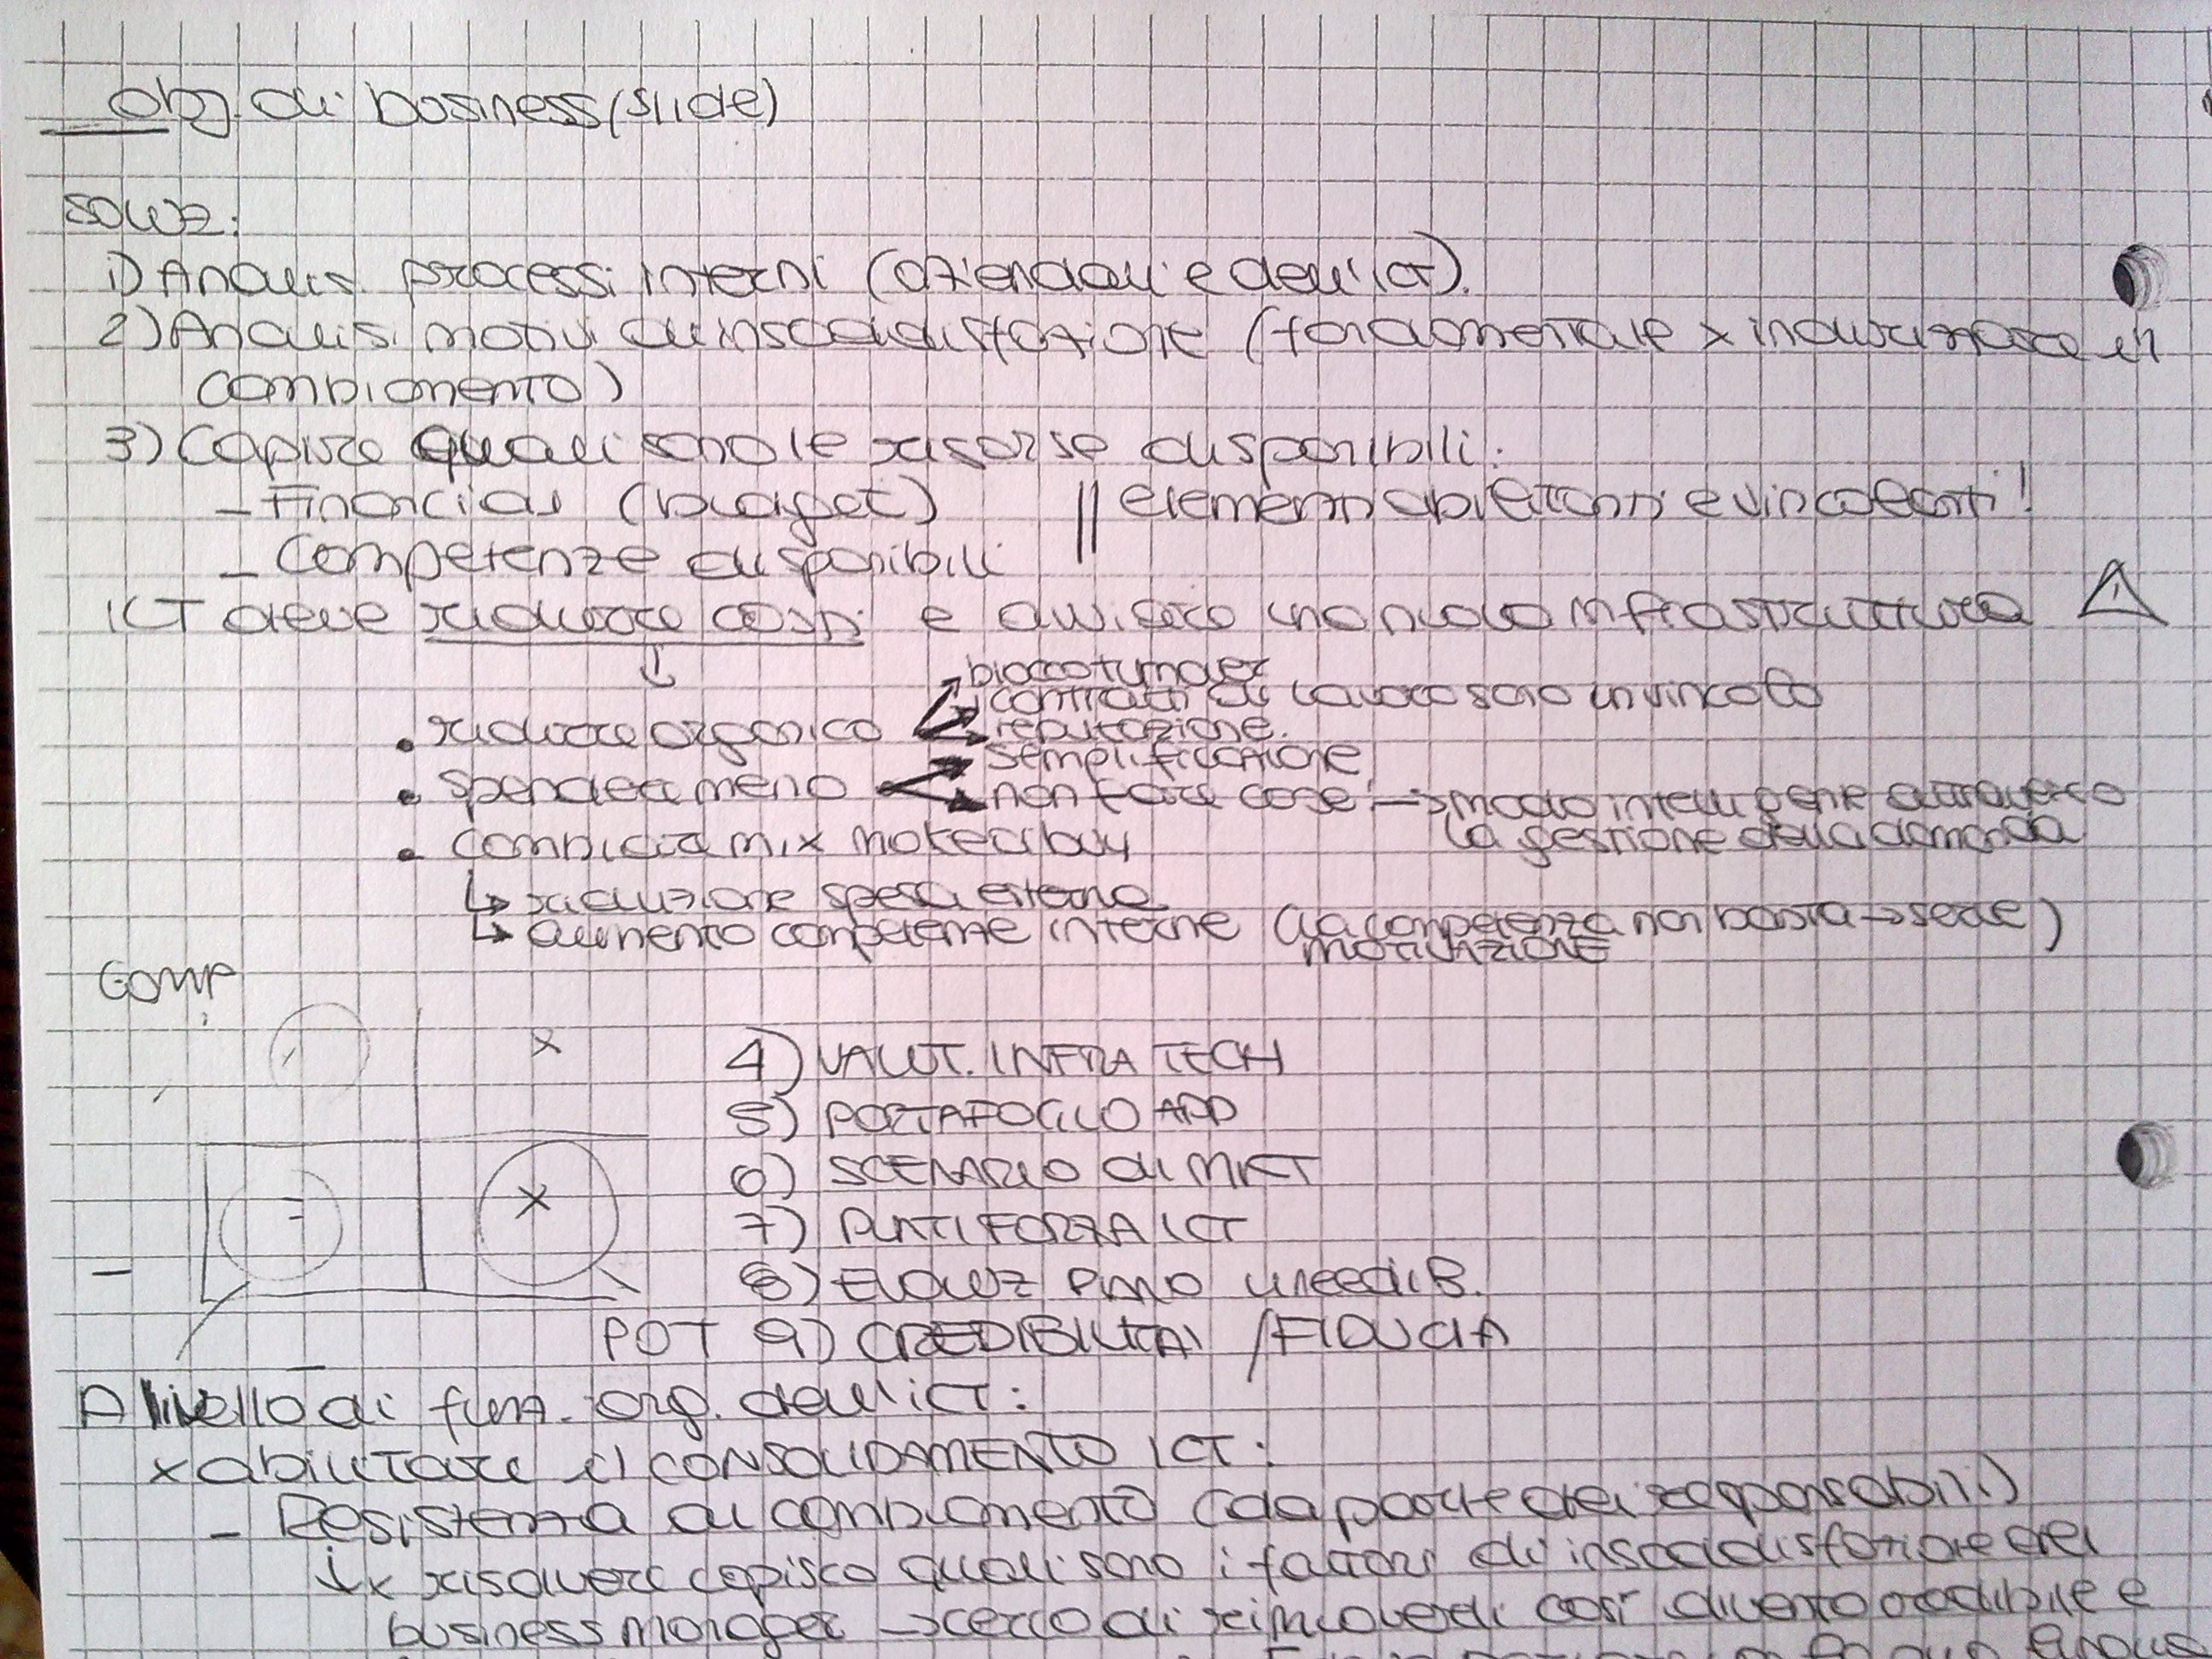 obj. di business (slide)
SOLUZ:
1) Analisi processi interni (aziendali e dell'ICT).
2) Analisi motivi di insoddisfazione (fondamentale x indirizzare il
cambiamento)
3) Capire quali sono le risorse disponibili:
- Financial (budget) || elementi abilitanti e vincolanti!
- Competenze disponibili
ICT deve ridurre costi e avviare una nuova infrastruttura
↓
blocco turnover
contratti di lavoro sono un vincolo
• ridurre organico
reputazione.
semplificazione
• spendere meno
non fare cose! → modo intelligente attraverso
la gestione della domanda
• cambiare mix make or buy
↳ riduzione spesa esterna
↳ aumento competenze interne (la competenza non basta → serve)
MOTIVAZIONE
COMP
4) VALUT. INFRA TECH
5) PORTAFOGLIO APP
6) SCENARIO di MKT
7) PUNTI FORZA ICT
8) EVOLUZ PMO linee di B.
POT 9) CREDIBILITA' / FIDUCIA
A livello di funz. org. dell'ICT:
x abilitare il CONSOLIDAMENTO ICT:
- Resistenza al cambiamento (da parte dei responsabili)
↓ x risolvere capisco quali sono i fattori di insoddisfazione dei
business manager → cerco di rimuoverli così divento credibile e